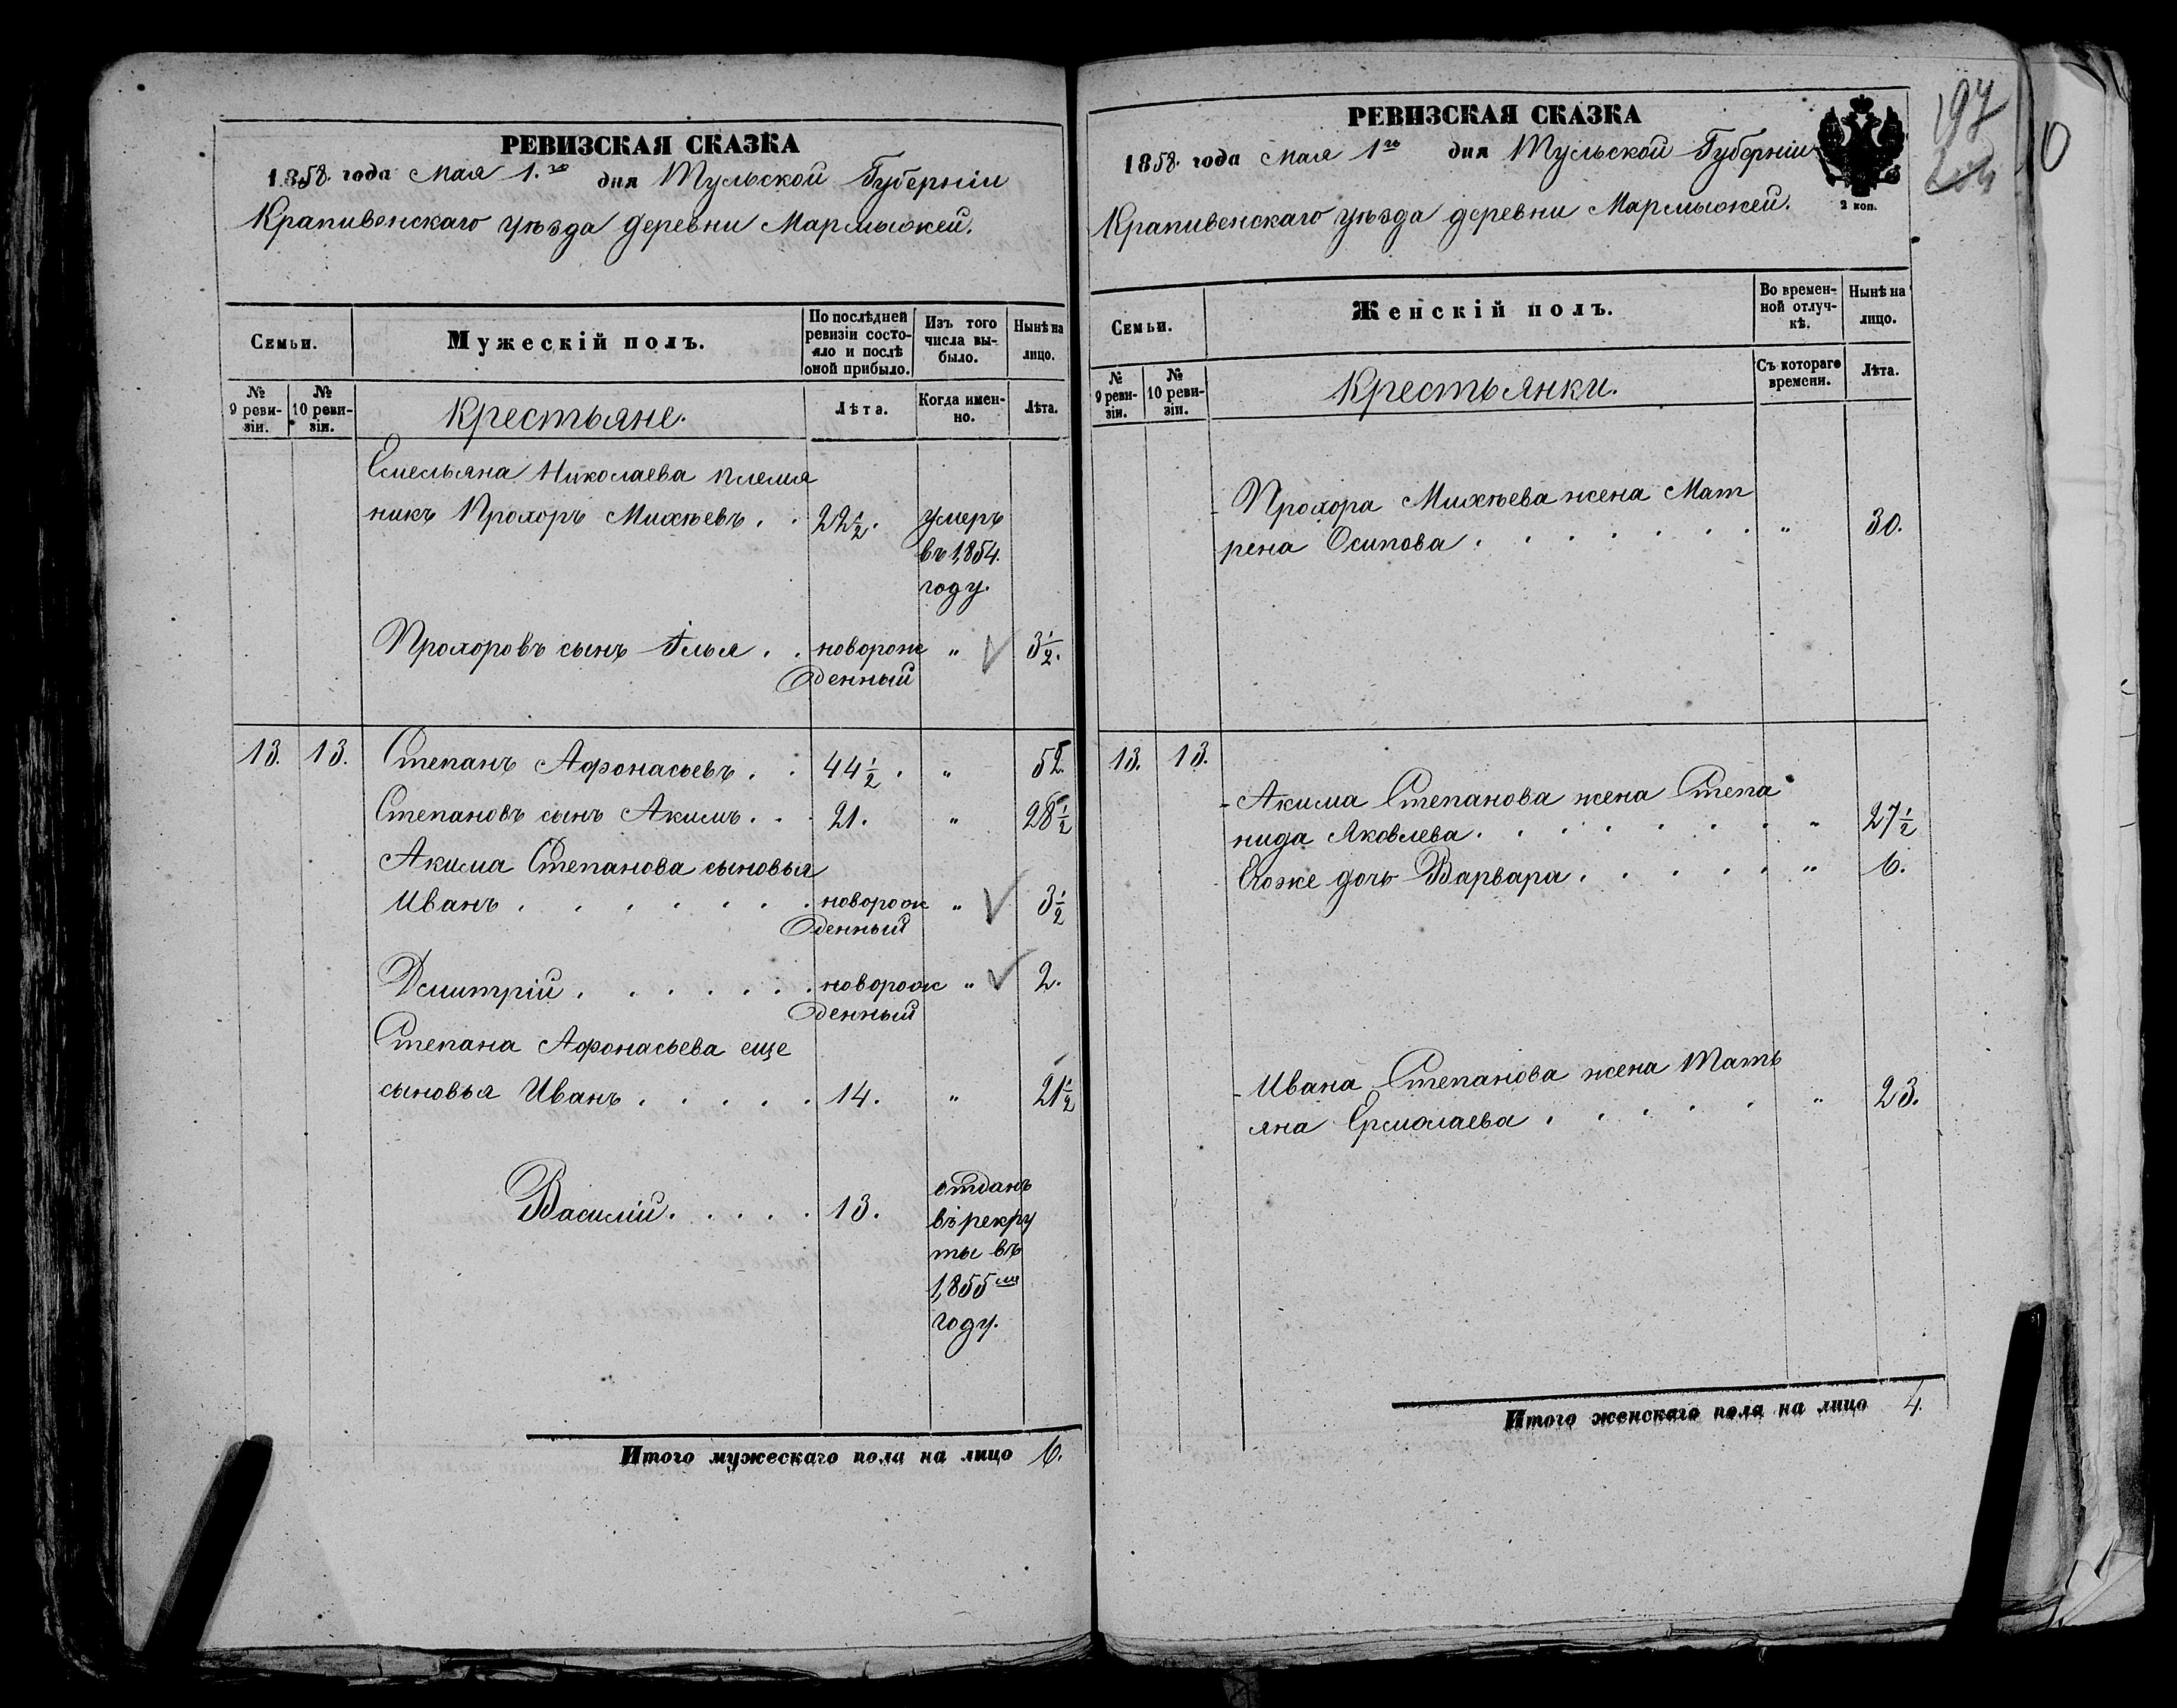 РЕВИЗСКАЯ СКАЗКА
1858. года Мая 1.го дня Тульской Губерніи
Крапивенскаго уѣзда деревни Мармыжей.
Семьи.
Мужескій полъ.
По послѣдней
ревизіи состо-
яло и послѣ
оной прибыло.
Изъ того
числа вы-
было.
Нынѣ на
лицо.
№
9 реви-
зіи.
№
10 реви-
зіи.
Крестьяне.
Лѣта.
Когда имен-
но.
Лѣта.
Емельяна Николаева племя
никъ Прохоръ Михѣевъ . . 22½. умеръ
въ 1,854.
году.
Прохоровъ сынъ Илья . . новорож „ 3½.
денный
13. 13. Степанъ Афонасьевъ . . 44½. „ 52.
Степановъ сынъ Акимъ . . . 21. „ 28½
Акима Степанова сыновья
Иванъ . . . . . . . новорож „ 3½
денный
Дмитрій . . . . . . новорож „ 2.
денный
Степана Афонасьева еще
сыновья Иванъ . . . . . 14. „ 21½
Василій . . . . . 13. отданъ
въ рекру
ты въ
1,855мъ
году.
Итого мужескаго пола на лицо 6.
РЕВИЗСКАЯ СКАЗКА
1858. года Мая 1го дня Тульской Губерніи
Крапивенскаго уѣзда деревни Мармыжей.
2 коп.
197
Семьи.
Женскій полъ.
Во времен-
ной отлуч-
кѣ.
Нынѣ на
лицо.
№
9 реви-
зіи.
№
10 реви-
зіи.
Крестьянки.
Съ котораго
времени.
Лѣта.
- Прохора Михѣева жена Мат
рена Осипова . . . . . . . „ 30.
13. 13.
- Акима Степанова жена Степа
нида Яковлева . . . . . . . „ 27½
Егоже дочь Варвара . . . . . „ 6.
- Ивана Степанова жена Тать
яна Ермолаева . . . . . „ 23.
Итого женскаго пола на лицо 4.